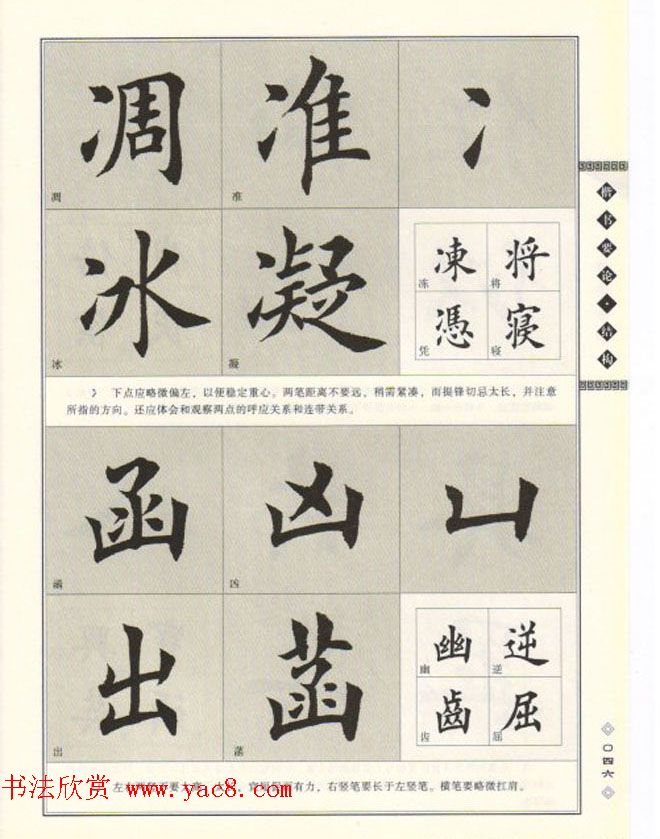 凋 准 冫
凋 准
冰 凝 凍 将
冻 将
憑 寝
冰 凝 凭 寝
冫 下点应略微偏左，以便稳定重心。两笔距离不要远，稍需紧凑，而提锋切忌太长，并注意
所指的方向。还应体会和观察两点的呼应关系和连带关系。
函 凶 凵
函 凶
出 菡 幽 逆
幽 逆
齒 屈
出 菡 齿 屈
右竖笔要长于左竖笔。横笔要略微扛肩。
书法欣赏 www.yac8.com
楷书要论·结构
〇四六